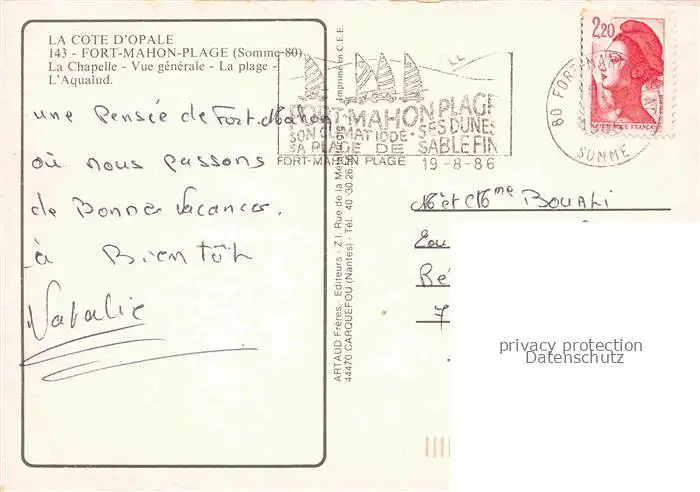 LA COTE D'OPALE
143 - FORT-MAHON-PLAGE (Somme 80)
La Chapelle - Vue générale - La plage -
L'Aqualud.
une Pensée de Fort-Mahon
où nous passons
de Bonnes Vacances.
à Bientôt
Natalie
ARTAUD Frères - Editeurs - Z.I. Rue de la Métallurgie
44470 CARQUEFOU (Nantes) - Tél. 40 30 26
Imprimé en C.E.E.
FORT-MAHON PLAGE
SON CLIMAT IODÉ - SES DUNES
SA PLAGE DE SABLE FIN
FORT-MAHON PLAGE 19-8-86
2,20
80 FORT-MA
SOMME
M et Mme BOUALI
Bé
7
privacy protection
Datenschutz